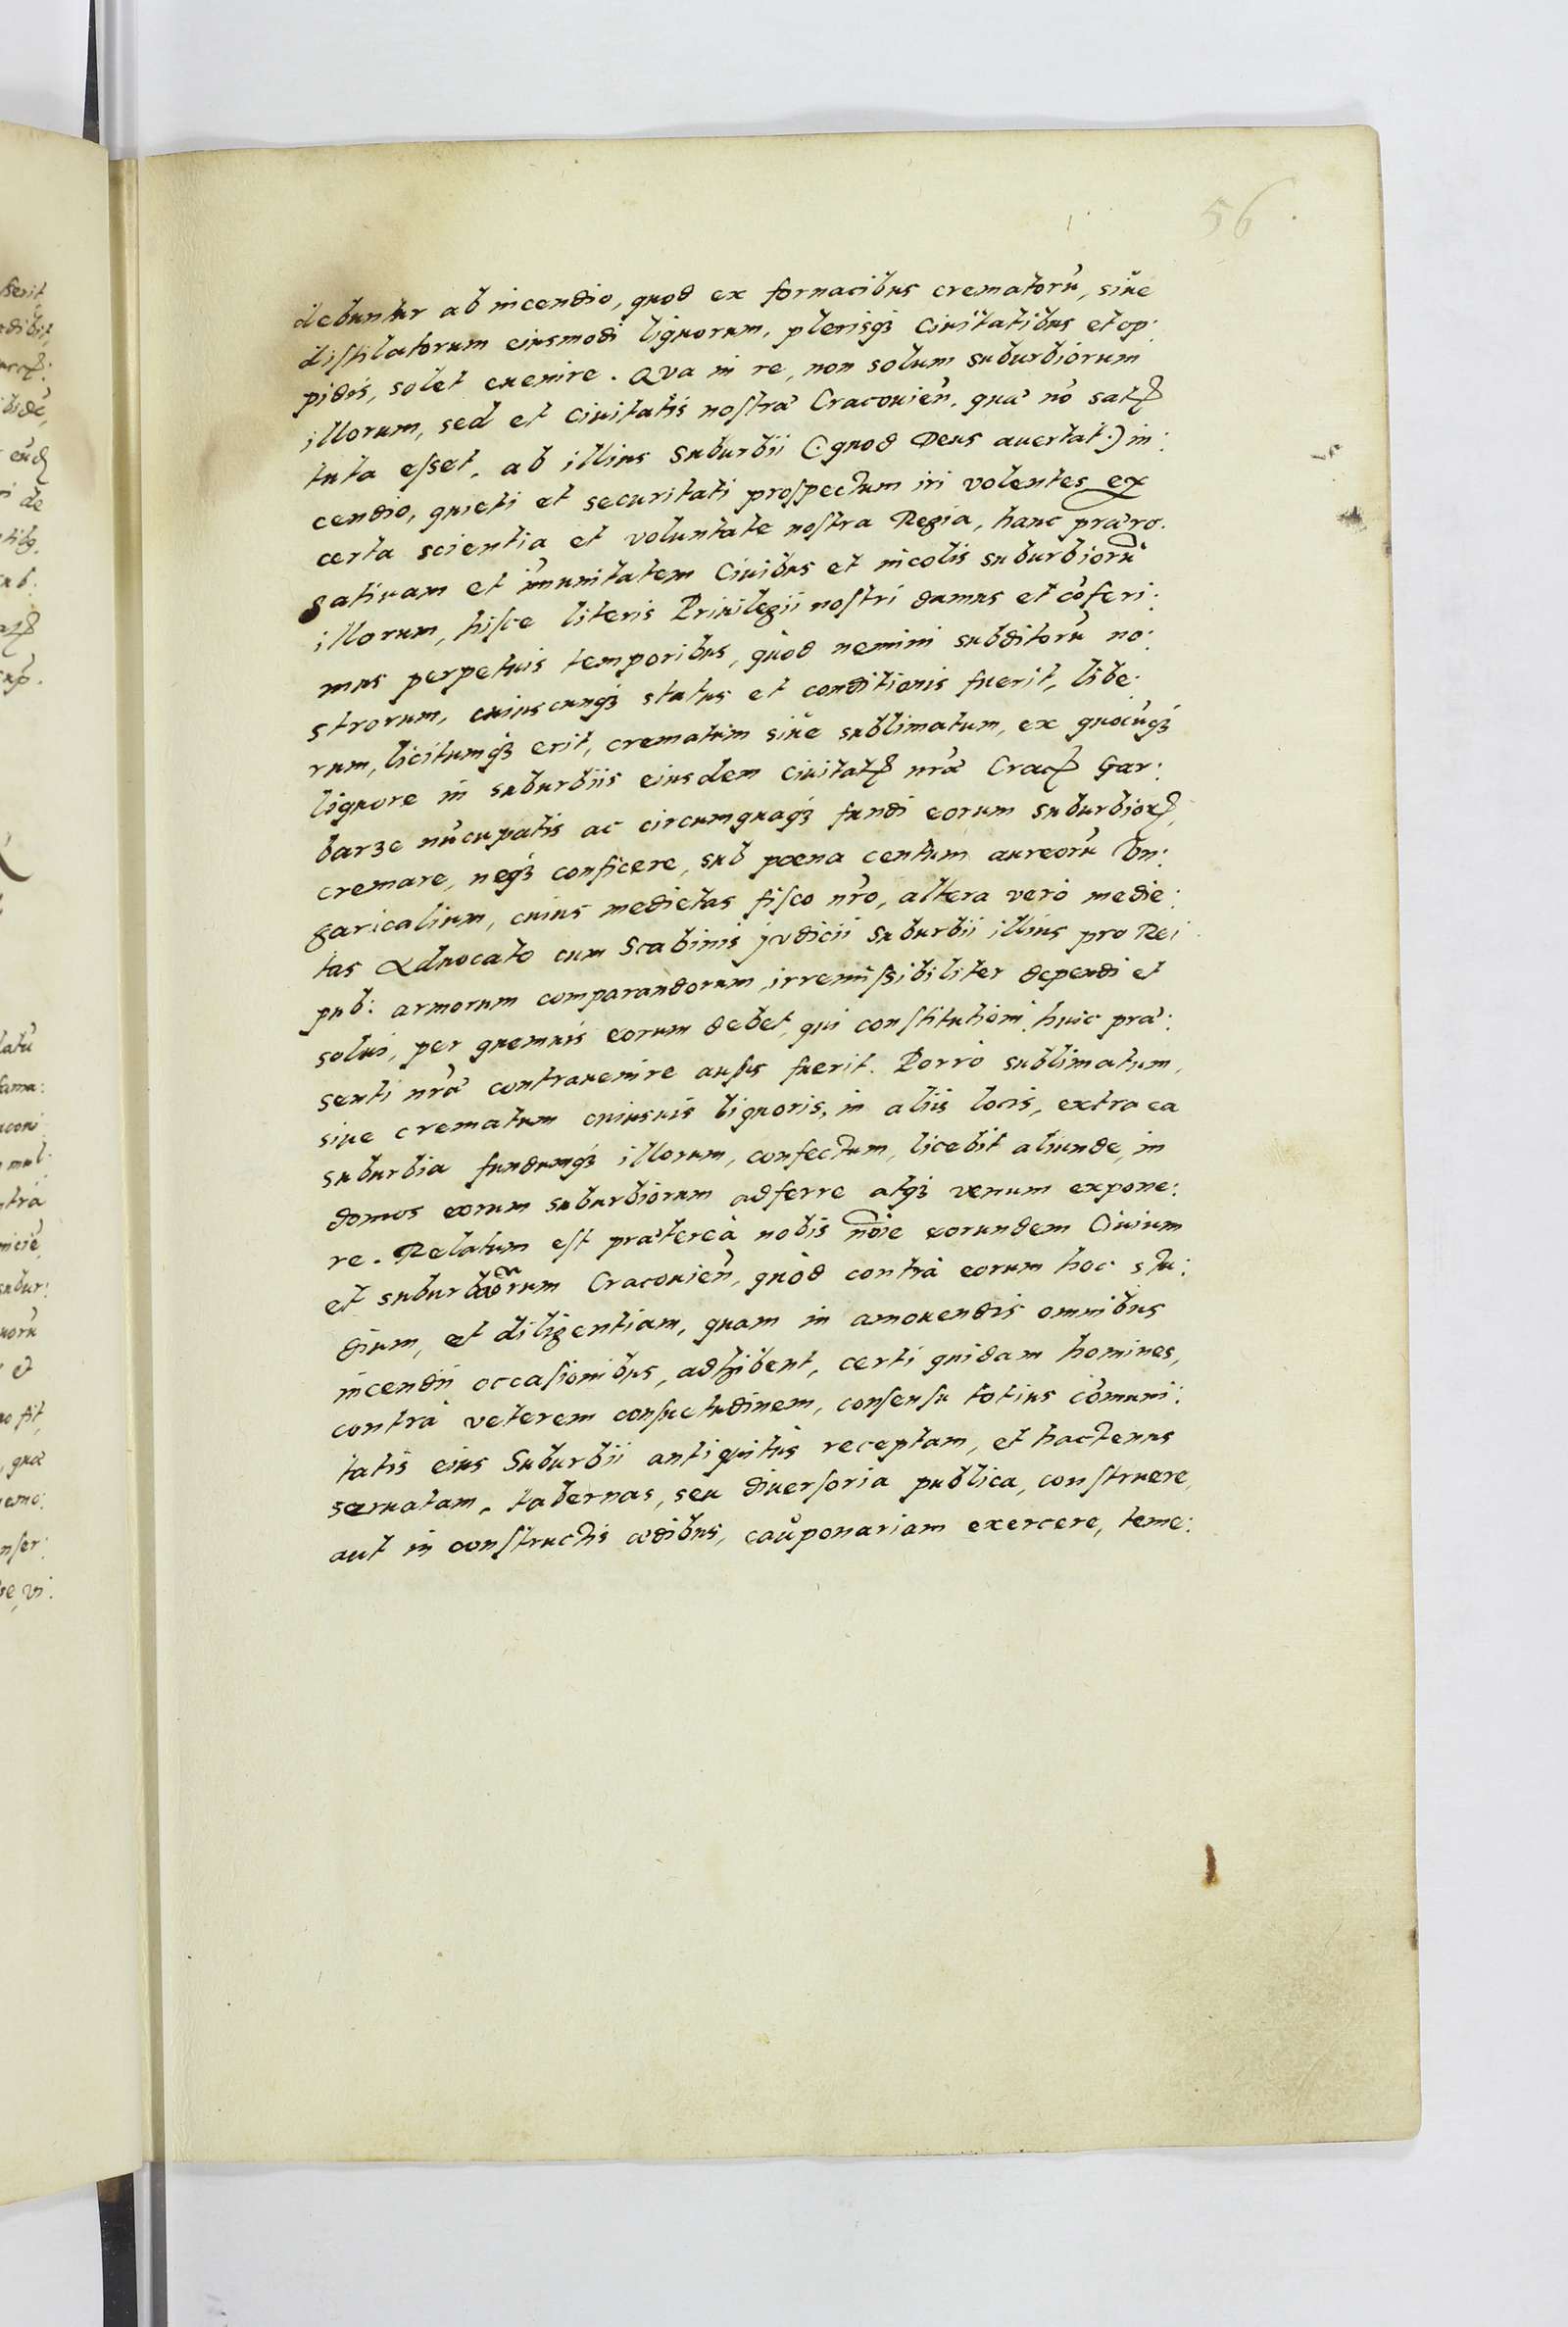 56
debuntur ab incendio, quod ex fornacibus crematorũ, siue
distilatorum eiusmodi liquorum, plerisqꝫ Ciuitatibus et op:
pidis, solet euenire. Qva in re, non solum suburbiorum
illorum, sed et Ciuitatis nostræ Cracouieñ. quæ nõ satꝭ
tuta esset, ab illius Suburbii (: quod Deus auertat :) in:
cendio, quieti et securitati prospectum iri volentes ex
certa scientia et voluntate nostra Regia, hanc præro:
gatiuam et im̃unitatem Ciuibus et incolis suburbiorũ
illorum, hisce literis Priuilegii nostri damus et cõferi:
mus perpetuis temporibus, quòd nemini subditorũ no:
strorum, cuiuscunqꝫ status et conditionis fuerit, libe:
rum, licitumqꝫ erit, crematum siue sublimatum, ex quocũqꝫ
liquore in suburbiis eiusdem Ciuitatꝭ nr̃æ Cracꝭ Gar:
barze nũcupatis ac circumquaqꝫ fundi eorum suburbioꝝ,
cremare, neqꝫ conficere, sub pœna centum aureorũ Vn:
garicalium, cuius medietas fisco nr̃o, altera verò medie:
tas Aduocato cum Scabinis judicii Suburbii illius pro Rei
pub: armorum comparandorum, irremissibiliter dependi et
solui, per quemuis eorum debet, qui constitutioni huic præ:
senti nr̃æ contrauenire ausus fuerit. Porrò sublimatum,
siue crematum cuiusuis liquoris, in aliis locis, extra ea
suburbia fundumqꝫ illorum, confectum, licebit aliunde, in
domos eorum suburbiorum adferre atqꝫ venum expone:
re. Relatum est prætereà nobis nõie eorundem Ciuium
et suburbanorum Cracouieñ, quòd contrà eorum hoc stu:
dium, et diligentiam, quam in amouendis omnibus
incendii occasionibus, adhibent, certi quidam homines,
contrà veterem consuetudinem, consensu totius cõmuni:
tatis eius Suburbii antiquitùs receptam, et hactenus
seruatam, tabernas, seu diuersoria publica, construere,
aut in constructis ædibus, cauponariam exercere, teme: